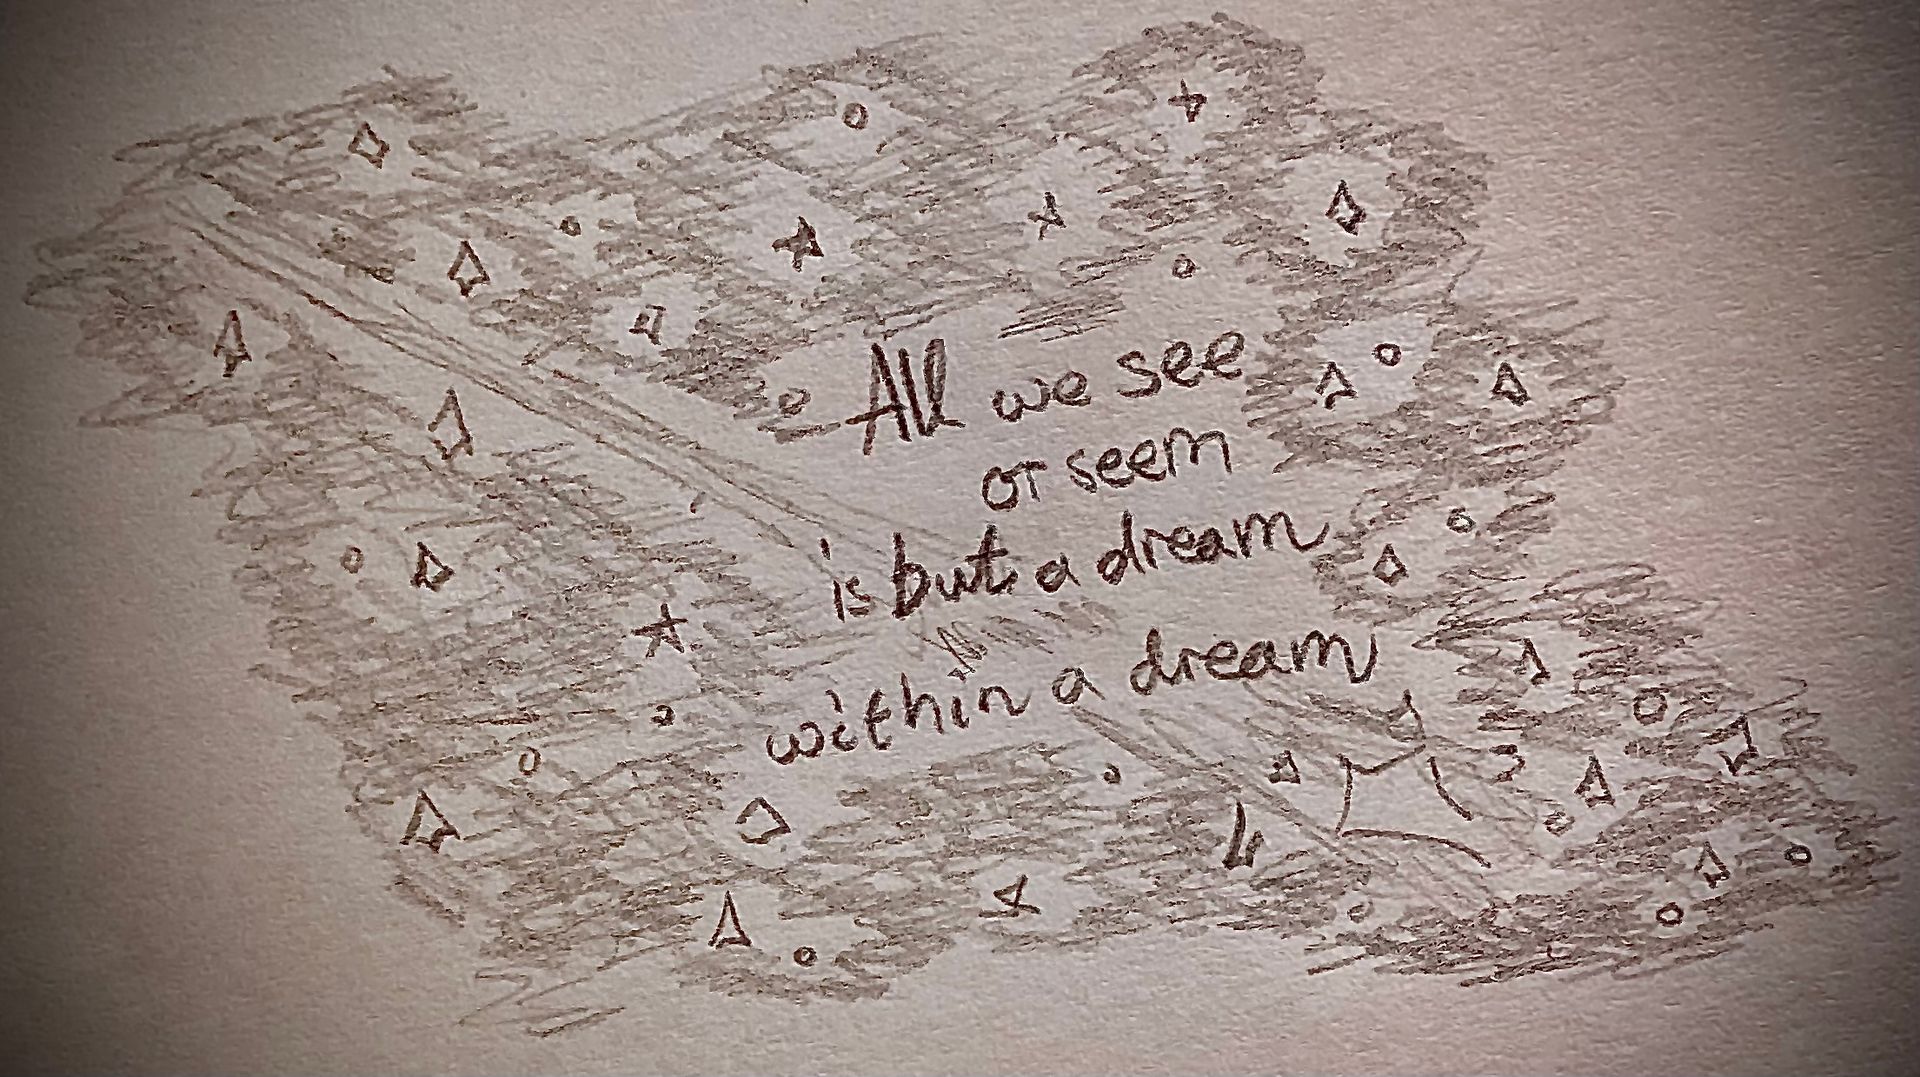 All we see
or seem
is but a dream
within a dream